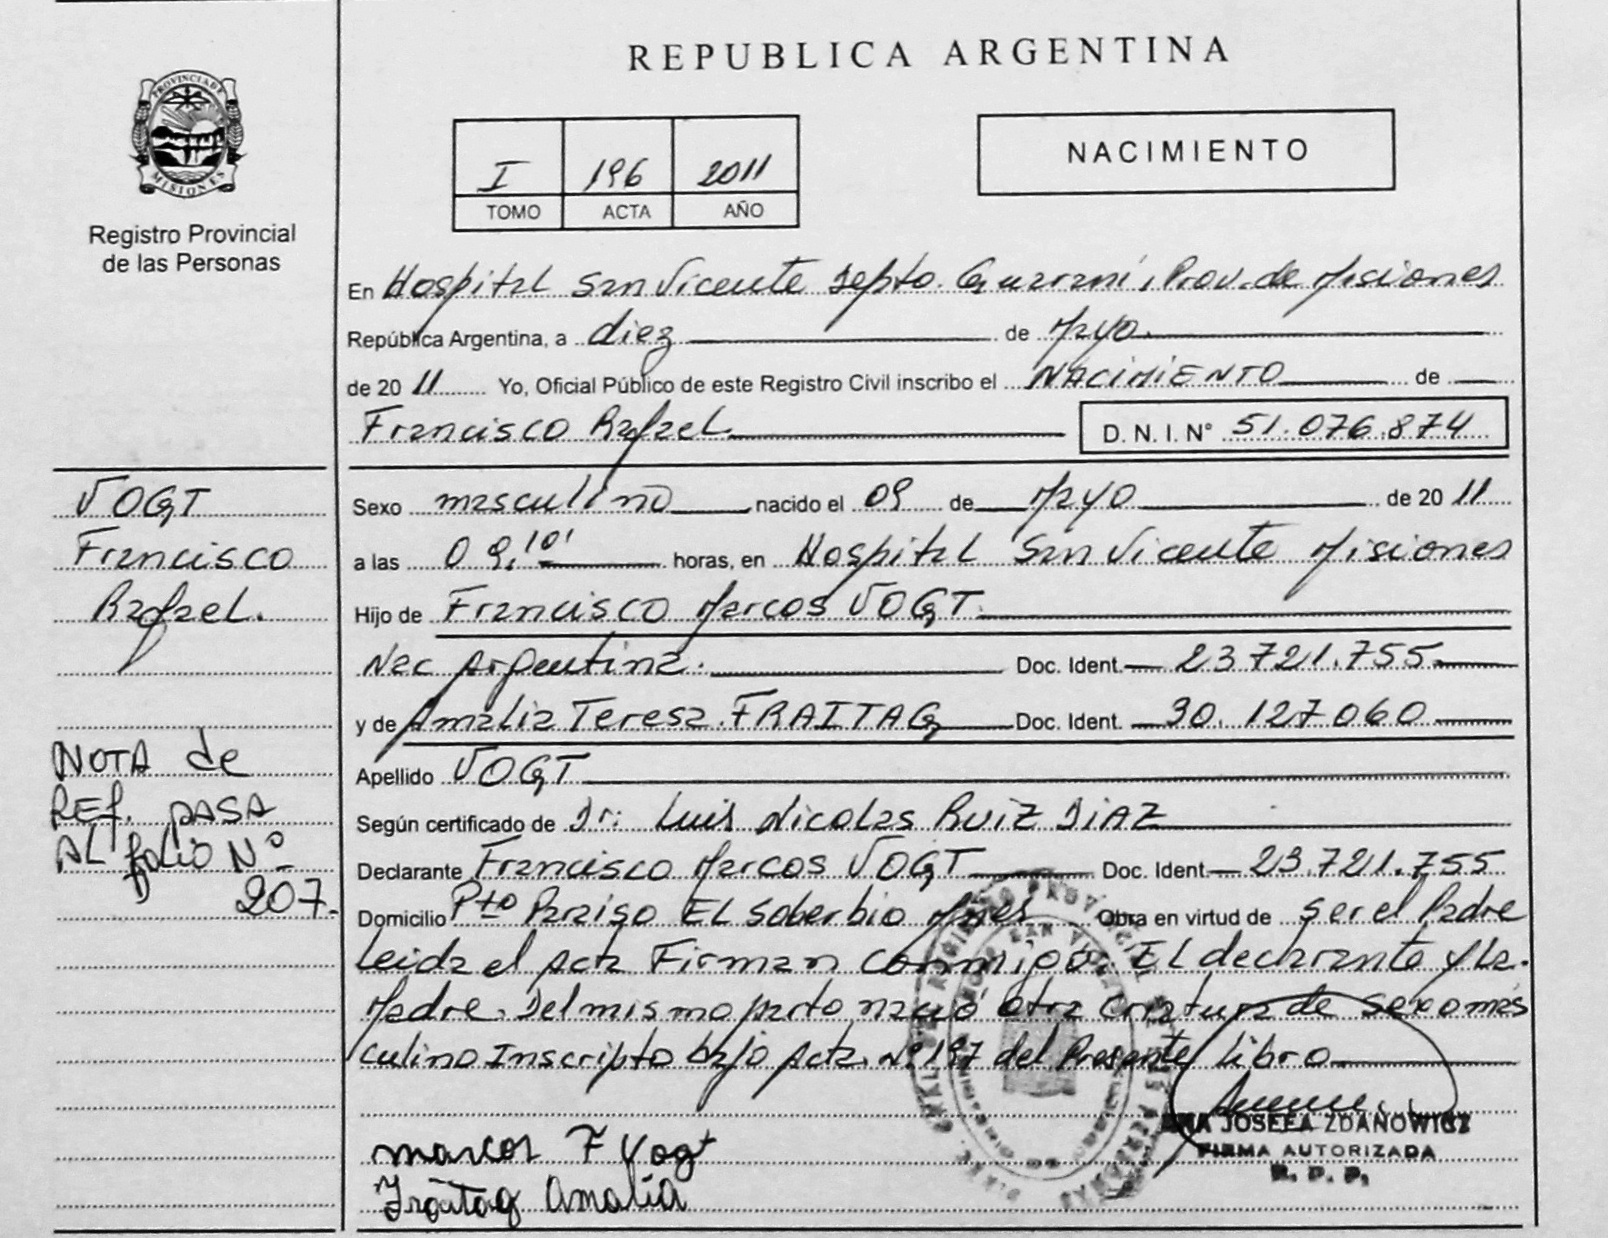 REPUBLICA ARGENTINA
PROVINCIA DE
MISIONES
Registro Provincial
de las Personas
I 196 2011
TOMO ACTA AÑO
NACIMIENTO
En Hospital San Vicente Depto. Guaraní, Prov. de Misiones
República Argentina, a diez de Mayo.
de 20 11 Yo, Oficial Público de este Registro Civil inscribo el NACIMIENTO de
Francisco Rafael. D. N. I. N° 51.076.874
VOGT
Francisco
Rafael.
Sexo masculino nacido el 09 de Mayo de 20 11
a las 09,10' horas, en Hospital San Vicente Misiones
Hijo de Francisco Marcos VOGT.
Nac Argentina. Doc. Ident. 23.721.755
y de Amalia Teresa FRAITAG Doc. Ident. 30.127060
Apellido VOGT
Según certificado de Dr: Luis Nicolas RUIZ DIAZ
Declarante Francisco Marcos VOGT Doc. Ident 23.721.755
Domicilio Pto Paraiso EL Soberbio Mnes Obra en virtud de ser el Padre
Leida el Acta Firman conmigo. EL declarante y La
Madre. Del mismo parto nació otra criatura de sexo mas
culino Inscripto bajo Acta Nº 197 del Presente Libro
NOTA de
REF. PASA
AL folio Nº
207.
Marcos F Vogt
Fraitag Amalia
JOSEFA ZDANOWICZ
FIRMA AUTORIZADA
R. P. P.